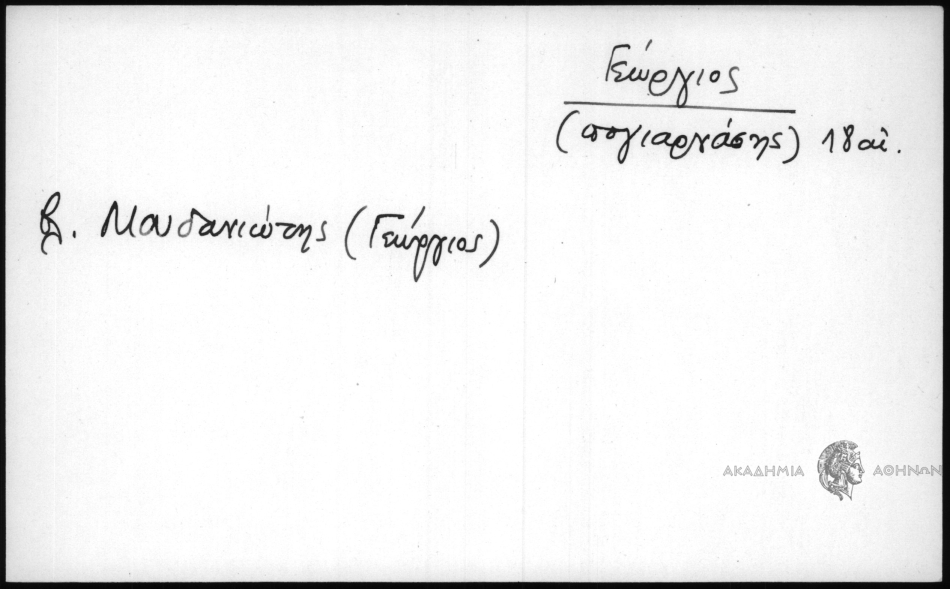 Γεώργιος
(πογιαρνάσης) 18 αἰ.
βλ. Μουδανιώτης (Γεώργιος)
ΑΚΑΔΗΜΙΑ ΑΘΗΝΩΝ